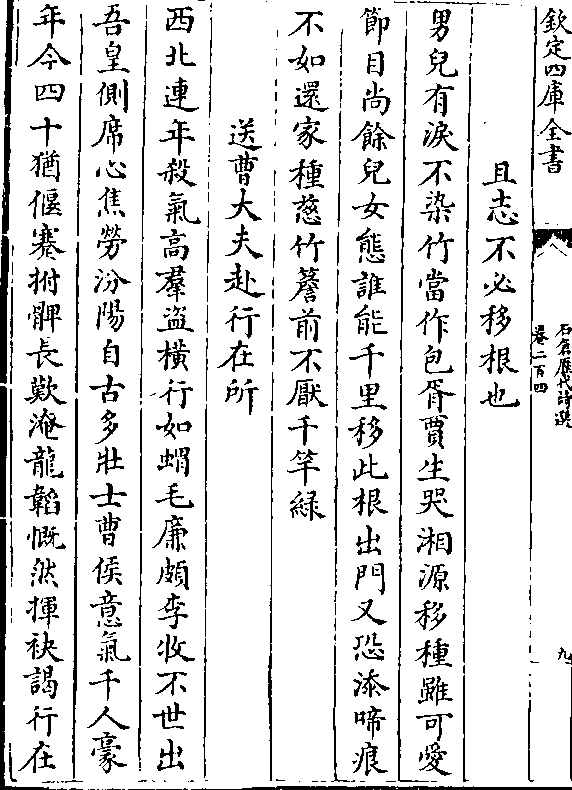 欽定四庫全書
石倉歷代詩選
卷二百四
九
且志不必移根也
男兒有淚不染竹當作包胥賈生哭湘源移種雖可愛
節目尚餘兒女態誰能千里移此根出門又恐添啼痕
不如還家種慈竹簷前不厭千竿緑
送曹大夫赴行在所
西北連年殺氣高羣盜橫行如蝟毛廉頗李牧不世出
吾皇側席心焦勞汾陽自古多壯士曹侯意氣千人豪
年今四十猶偃蹇拊髀長歎淹龍韜慨然揮袂謁行在